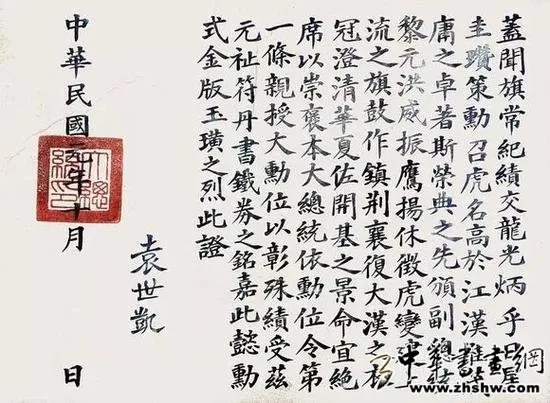 蓋聞旗常紀績交龍光炳乎日星
圭瓚策勳召虎名高於江漢
庸之卓著斯榮典之先頒副總統
黎元洪威振鷹揚休徵虎變建上
流之旗鼓作鎮荊襄復大漢之衣
冠澄清華夏佐開基之景命宜絕
席以崇褒本大總統依勳位令第
一條親授大勳位以彰殊績受茲
元祉符丹書鐵券之銘嘉此懿勳
式金版玉璜之烈此證
袁世凱
中華民國年十月 日
中華書畫網
www.zhshw.com